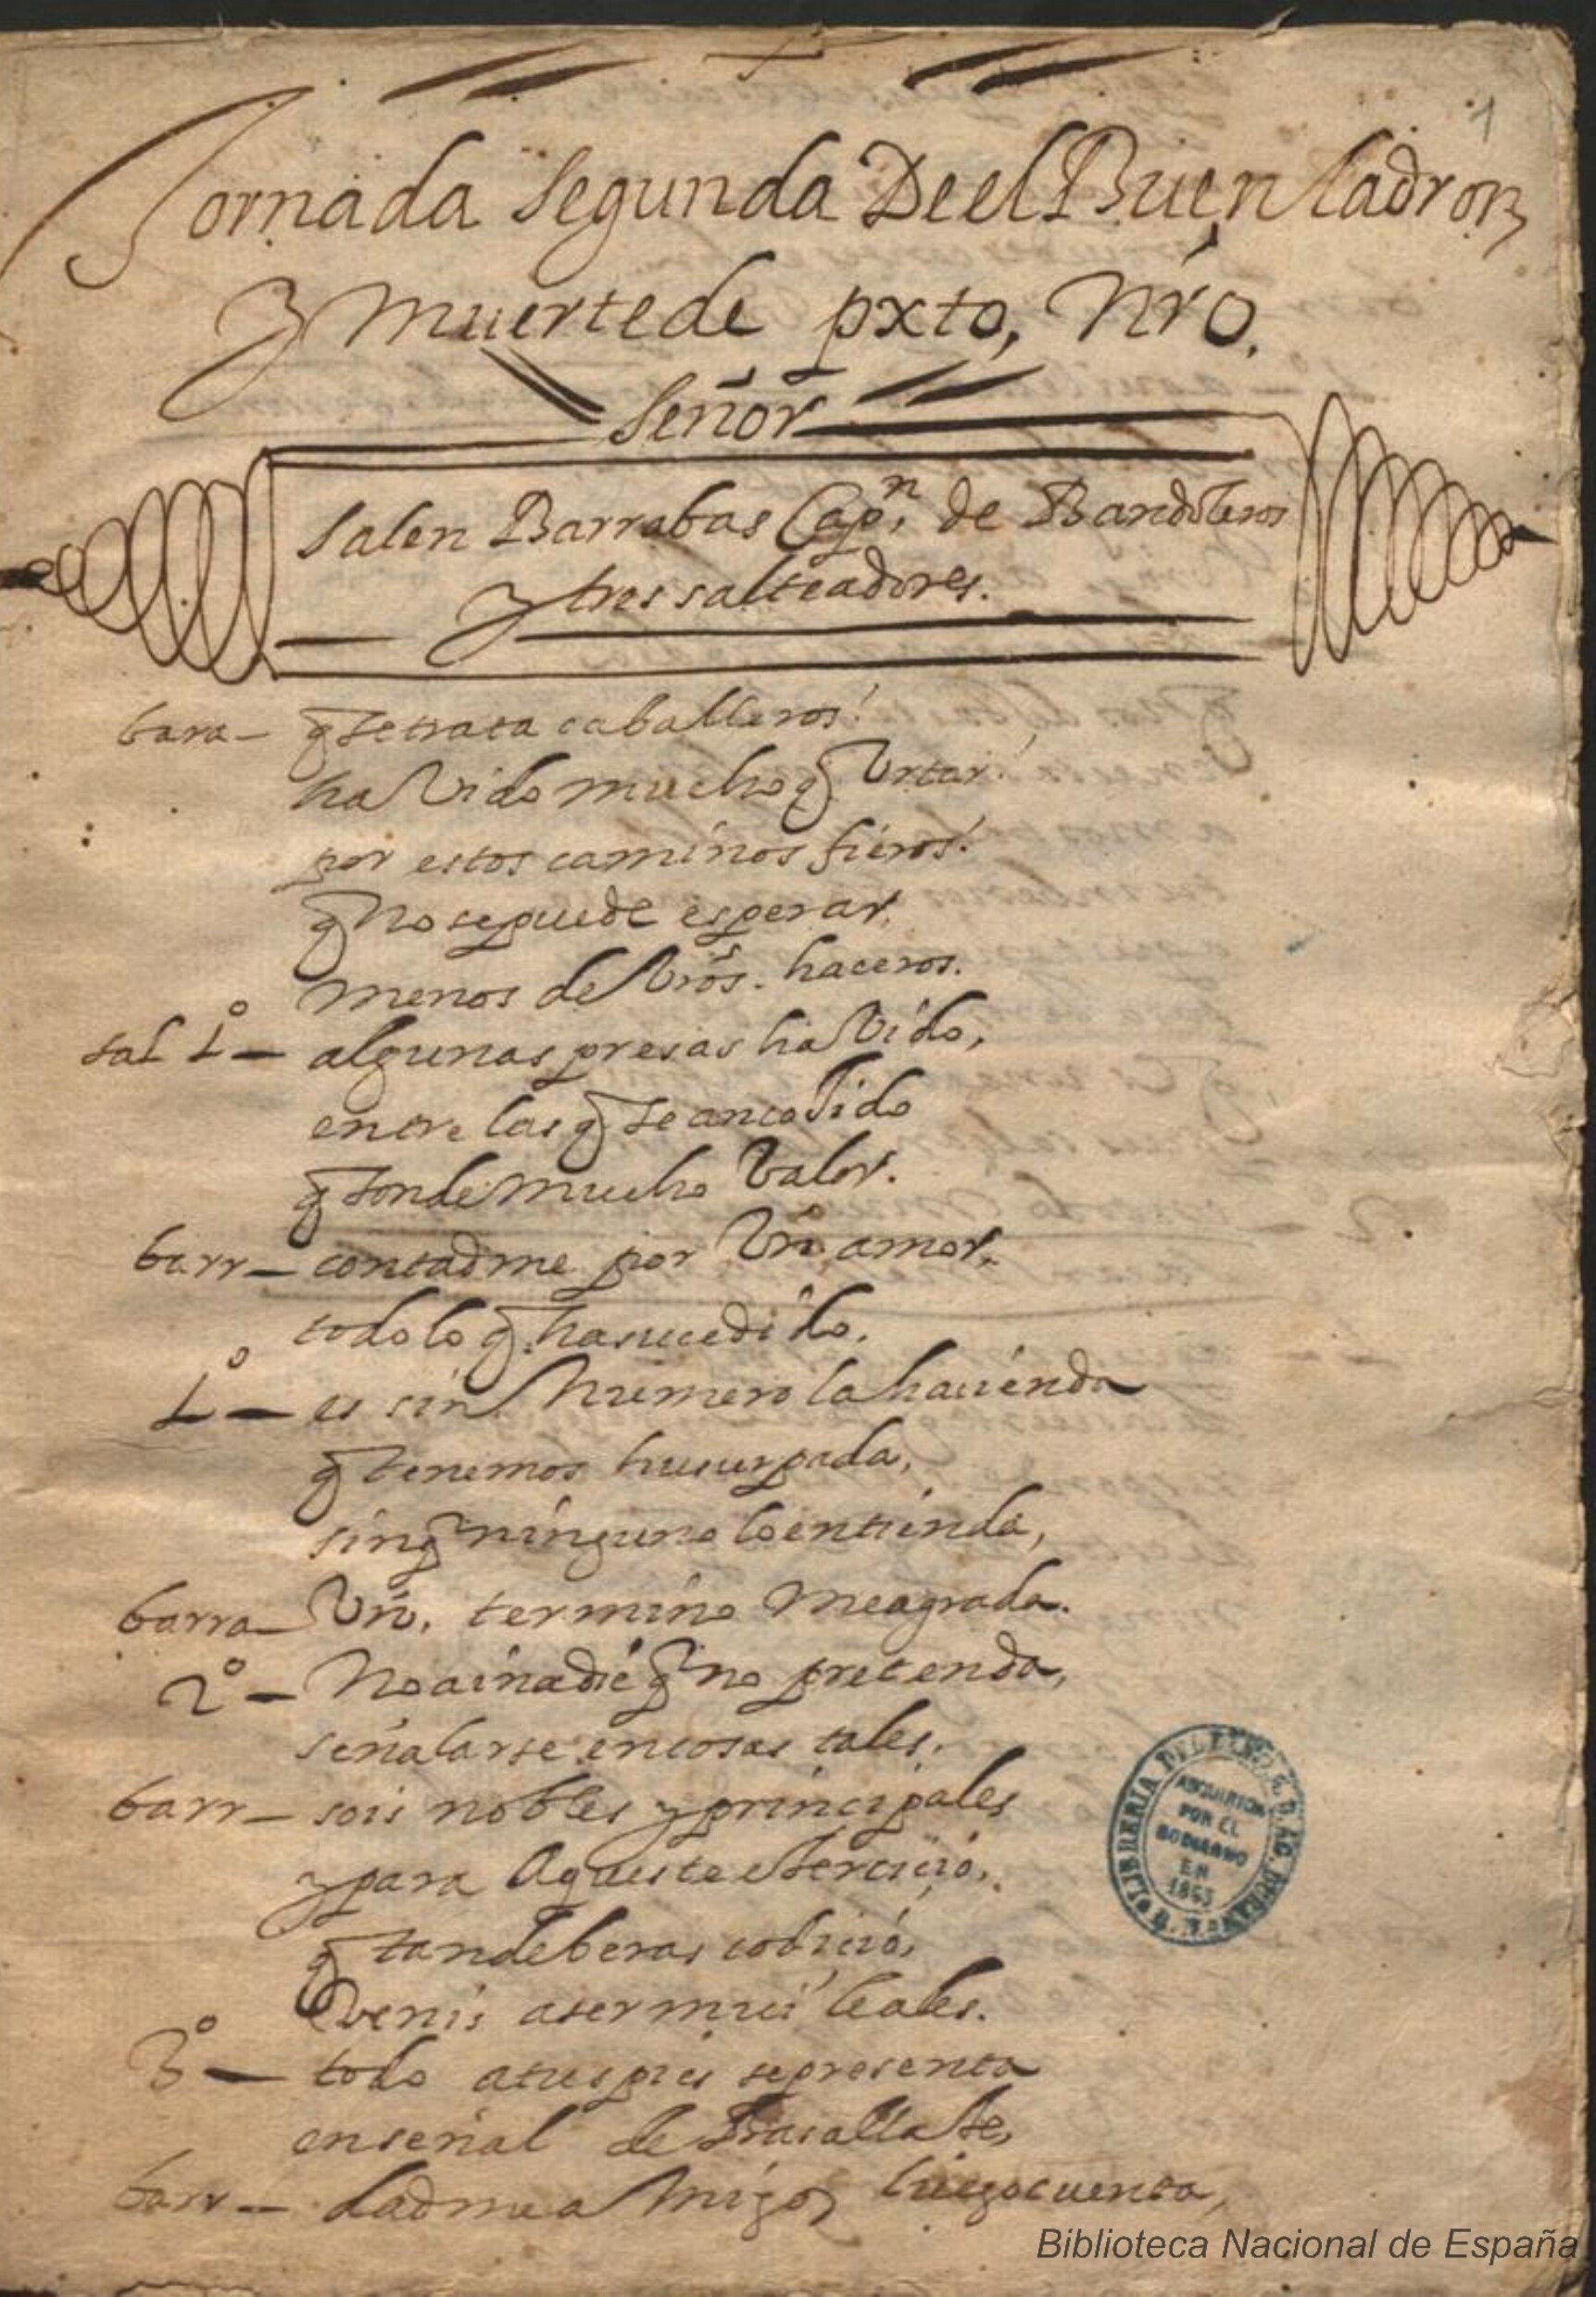 1
Jornada Segunda De el Buen ladron
Y muerte de pxto, nr̃o.
Señor
Salen Barrabas Capn. de Bandoleros
y tres salteadores.
bara- q̃ se trata caballeros!
ha Vido mucho q̃ Vrtar!
por estos caminos fieros!
q̃ No se puede esperar.
menos de Vr̃os. haceros.
sal 1º- algunas presas ha Vido,
entre las q̃ se an coJido
q̃ son de mucho Valor.
barr- contadme por Vr̃o amor,
todo lo q̃ ha sucedido.
1º- es sin Numero la hacienda
q̃ tenemos husurpada,
sin q̃ ninguno lo entienda,
barra- Vr̃o. termino me agrada.
2º- No ai nadie q̃ no pretenda,
señalarse en cosas tales.
barr- sois nobles y principales
y para Aqueste eJercicio,
q̃ tan de beras codicio,
Venis a ser mui leales.
3º- todo a tus pies se presenta
en señal de Vasallaje,
barr- dadme aMigos luego cuenta,
LIBRERIA DEL
ADQUIRIDA
POR EL
GOBIERNO
EN
1863
Biblioteca Nacional de España